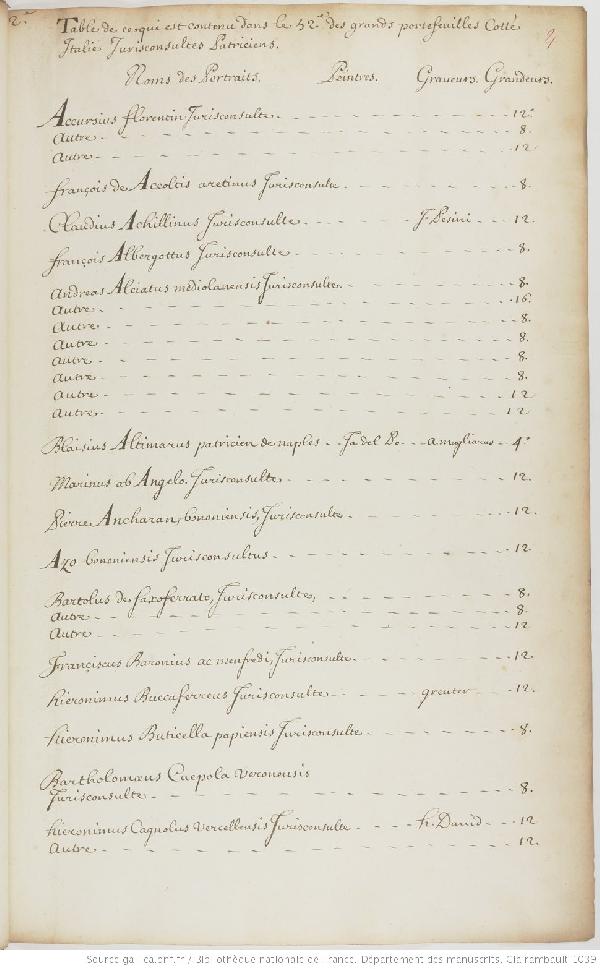 2.e
Table de ce qui est contenu dans le 52.e des grands portefeuilles Cotté
Italie Jurisconsultes Patriciens.
2
Noms des Portraits. Peintres. Graveurs. Grandeurs.
Accursius florentin Jurisconsulte 12.
autre 8.
autre 12
françois de Accoltis aretinus Jurisconsulte 8.
Claudius Achillinus Jurisconsulte J. Pesini 12.
françois Albergottus Jurisconsulte 8.
andreas Alciatus mediolanensis Jurisconsulte 8.
autre 16.
autre 8.
autre 8.
autre 8.
autre 8.
autre 12
autre 12
Blaisius Altimarus patricien de naples Ja del Po amagliarus 4.
Marinus ab Angelo Jurisconsulte 12.
Pierre Ancharan, bononiensis, Jurisconsulte 12.
Azo bononiensis Jurisconsultus 12.
Bartolus de saxoferrato, Jurisconsulte, 8.
autre 8.
autre 12
Franciscus Baronius ac menfredi, Jurisconsulte 12.
hieronimus Buccaferreus Jurisconsulte greuter 12.
hieronimus Buticella papiensis Jurisconsulte 8.
Bartholomæus Cæpola Veronensis
Jurisconsulte 8.
hieronimus Cagnolus Vercellensis Jurisconsulte h. David 12
autre 12.
Source gallica.bnf.fr / Bibliothèque nationale de France. Département des manuscrits. Clairambault 1039